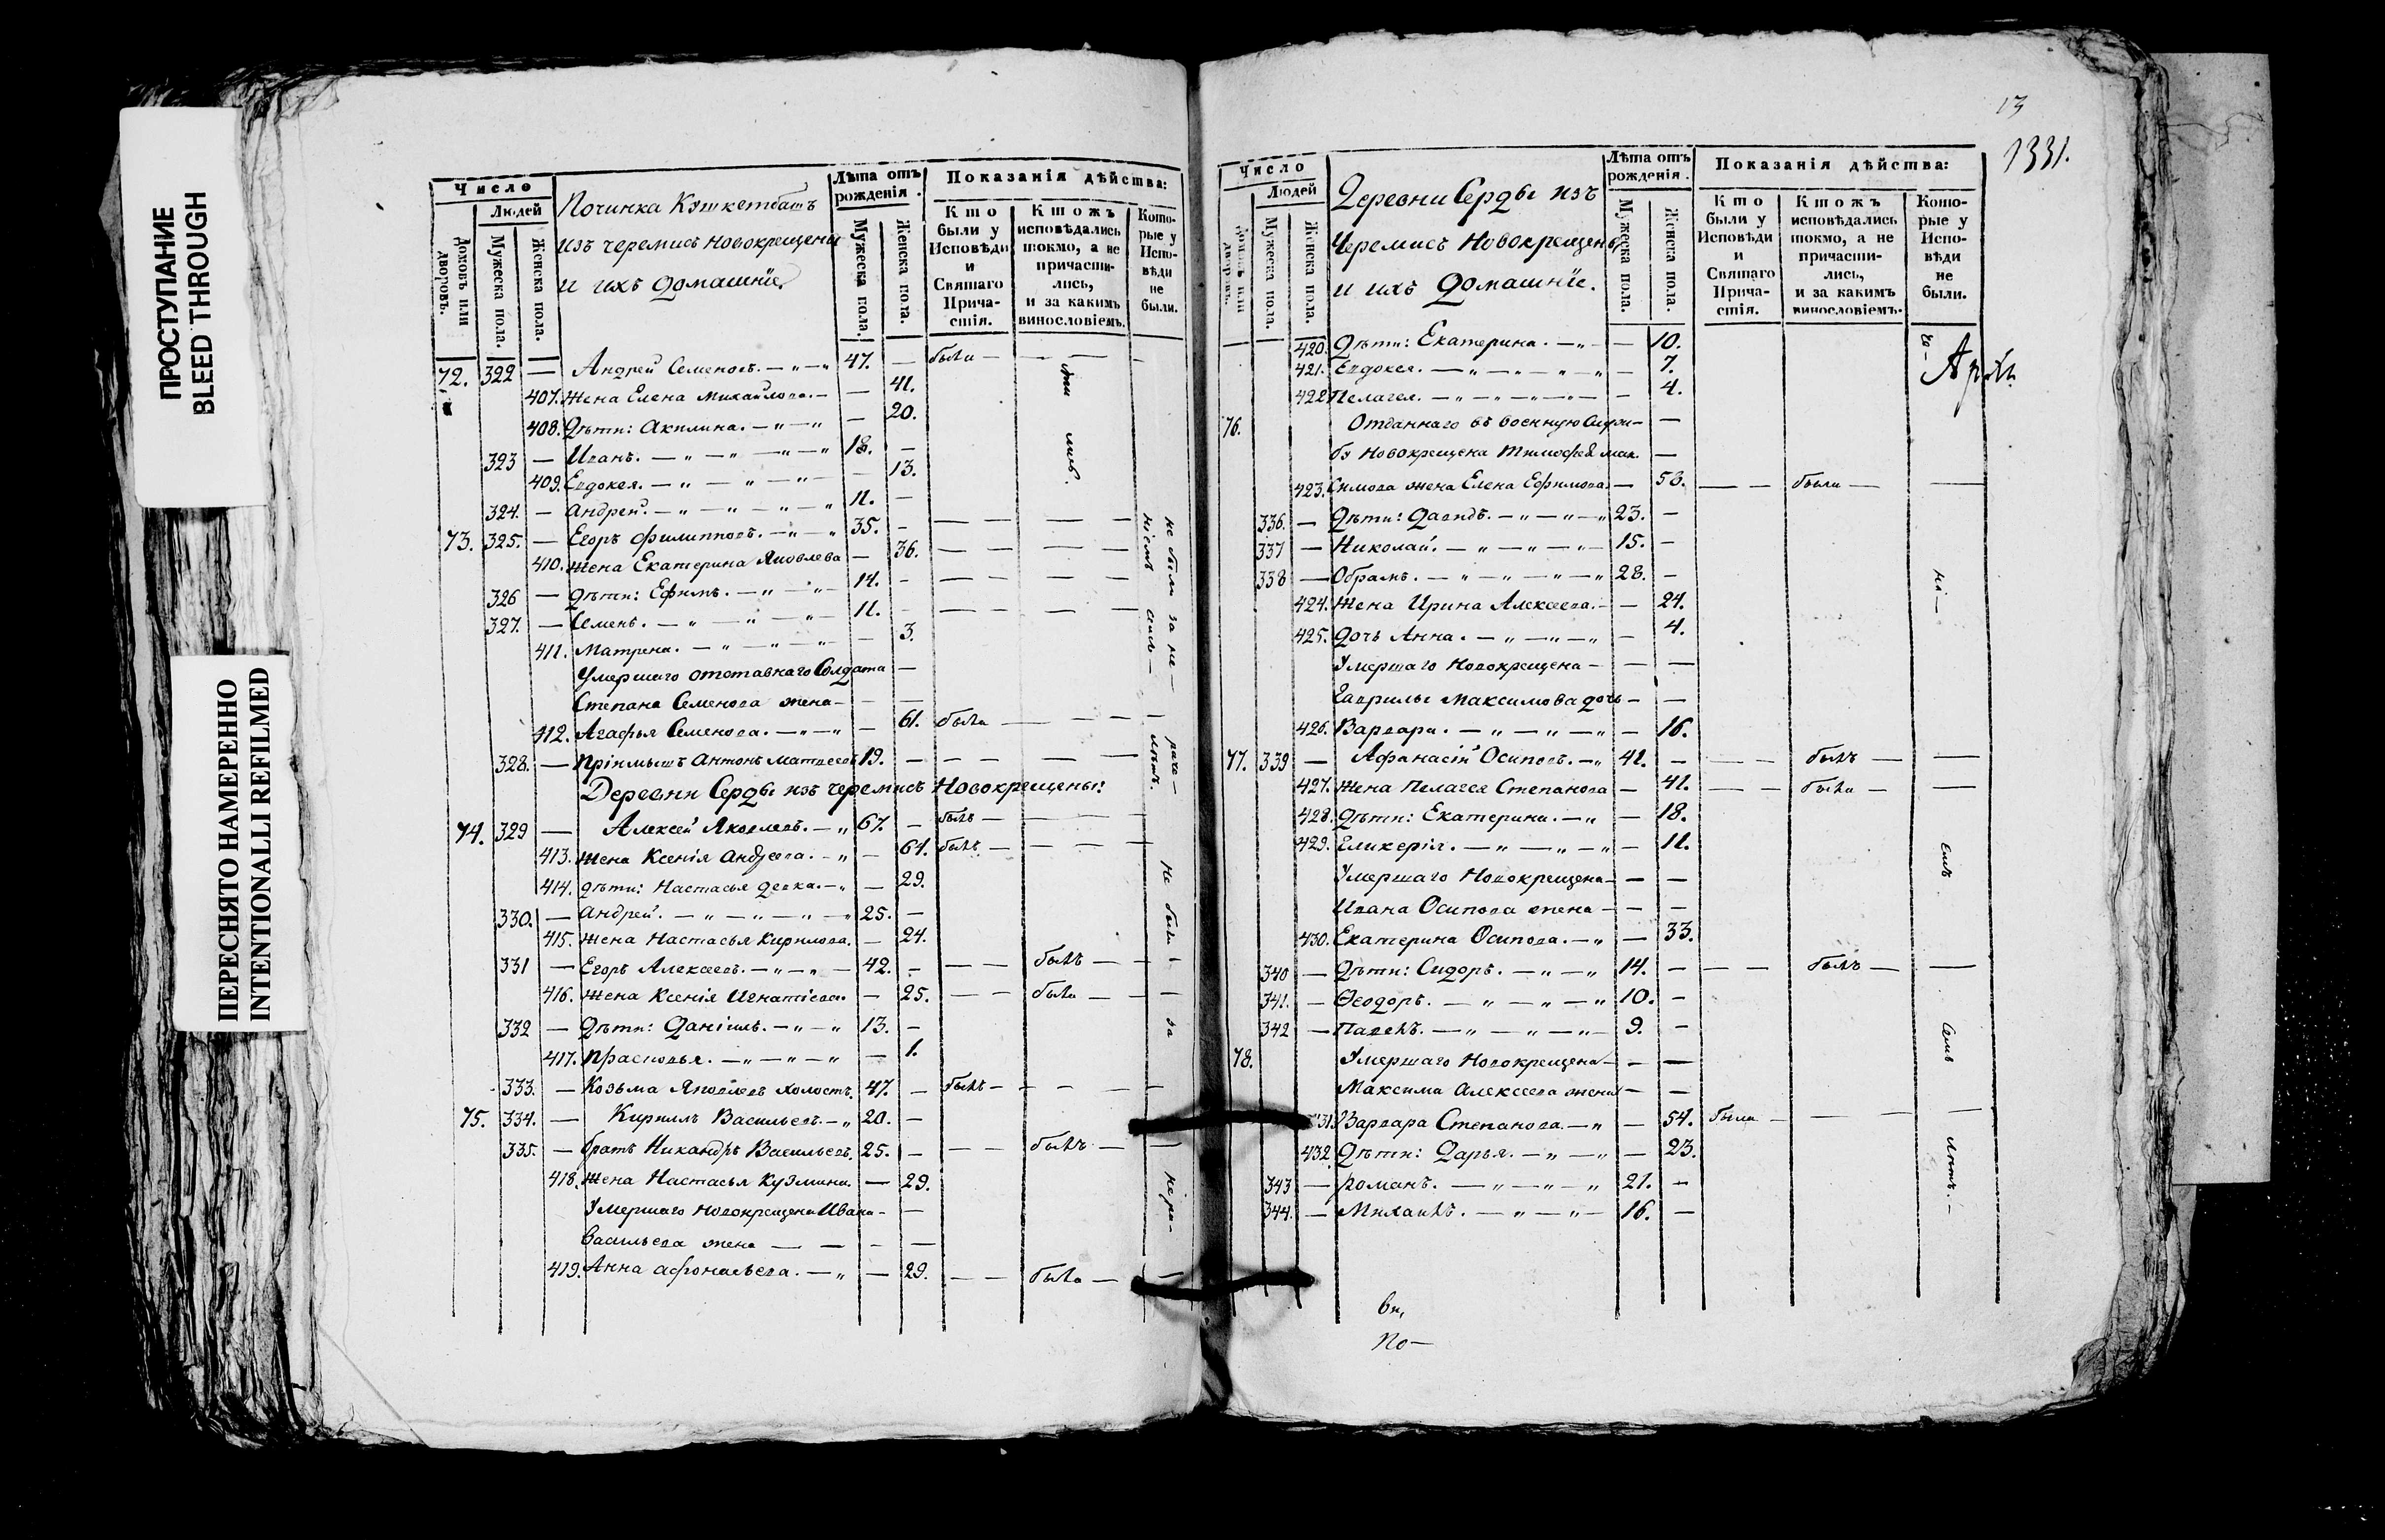 ПРОСТУПАНИЕ
BLEED THROUGH
ПЕРЕСНЯТО НАМЕРЕННО
INTENTIONALLI REFILMED
Число
Людей
домовъ или дворовъ.
Мужеска пола.
Женска пола.
Починка Кэшкетбашъ
изъ черемисъ новокрещены
и ихъ домашніе
Лѣта отъ рожденія.
Мужеска пола.
Женска пола.
Показанія дѣйства:
Кто были у Исповѣди и Святаго Причастія.
Ктожъ исповѣдались токмо, а не причастились, и за какимъ винословіемъ.
Которые у Исповѣди не были.
72. 322 — Андрей Семеновъ. — „ — „ 47. — были — — — —
407. Жена Елена Михайлова. — — 41.
408. Дѣти: Акилина. — „ — „ — 20.
323 — Иванъ. — „ — „ — „ — „ 18. —
409. Евдокея. — „ — „ — „ — — 13.
324. — Андрей. — „ — „ — „ — „ 11. —
73. 325. — Егоръ Филипповъ. — „ — „ 35. — — — — —
410. Жена Екатерина Яковлева — 36. — — — —
326 — Дѣти: Ефимъ. — „ — „ — 14. — — — — —
327. — Семенъ. — „ — „ — „ — 11. — — — — —
411. Матрена. — „ — „ — „ — — 3.
Умершаго отставнаго Солдата —
Степана Семенова жена — — —
412. Агафья Семенова. — „ — „ — 61. была — — — —
328. — Пріимышъ Антонъ Матвеевъ 19. — — — — —
Деревни Серды изъ черемисъ Новокрещены:
74. 329 — Алексей Яковлевъ. — „ 67. — былъ — — — —
413. Жена Ксенія Андреева. — „ — 61. — — — —
414. Дѣти: Настасья девка. — „ — 29.
330. — Андрей. — „ — „ — „ — „ 25. —
415. Жена Настасья Кирилова. — 24.
331 — Егоръ Алексеевъ. — „ — „ — 42. — — — былъ — — —
416. Жена Ксенія Игнатіева. — 25. — — была — — —
332 — Дѣти: Даніилъ. — „ — „ 13. —
417. Прасковья. — „ — „ — „ — 1.
333. — Козьма Яковлевъ холостъ. 47. — былъ — — — — —
75. 334. — Кирилъ Васильевъ. — „ 20. —
335. — братъ Никандръ Васильевъ. 25. — — — былъ — —
418. Жена Настасья Кузмина. — 29.
Умершаго новокрещена Ивана — —
Васильева жена — — — —
419. Анна Афонасьева. — „ — 29. — — была — —
13
1331.
Число
Людей
Мужеска пола.
Женска пола.
Деревни Серды изъ
Черемисъ Новокрещены
и ихъ домашніе.
Лѣта отъ рожденія.
Мужеска пола.
Женска пола.
Показанія дѣйства:
Кто были у Исповѣди и Святаго Причастія.
Ктожъ исповѣдались токмо, а не причастились, и за какимъ винословіемъ.
Которые у Исповѣди не были.
420. Дѣти: Екатерина. — „ — — 10.
421. Евдокея. — „ — „ — „ — „ — 7.
422 Пелагея. — „ — „ — „ — — 4.
76. Отданнаго въ военную —
Новокрещена Тимофея Мак. —
423. симова жена Елена Ефимова. — 53. — — были — —
336. — Дѣти: Давидъ. — „ — „ — „ 23. —
337 — Николай. — „ — „ — „ — 15. —
338 — Обрамъ. — „ — „ — „ — „ 28. —
424. Жена Ирина Алексеева. — — 24.
425. Дочь Анна. — „ — „ — „ — 4.
Умершаго Новокрещена — — —
Гаврилы Максимова дочь — —
426. Варвара. — „ — „ — „ — 16.
77. 339 — Афанасій Осиповъ. — „ 41. — — — былъ — —
427. Жена Пелагея Степанова — 41. — — была — —
428. Дѣти: Екатерина. — „ — 18.
429. Гликерія. — „ — „ — „ — 11.
Умершаго Новокрещена — — —
Ивана Осипова жена — — —
430. Екатерина Осипова. — „ — 33.
340 — Дѣти: Сидоръ. — „ — „ 14. — — — былъ — —
341. — Ѳеодоръ. — „ — „ — „ 10. —
342 — Павелъ. — „ — „ — „ — 9. —
78. Умершаго Новокрещена — — —
Максима Алексеева жена — —
431 Варвара Степанова. — „ — 54. была — — — —
432. Дѣти: Дарья. — „ — „ — 23.
343 — Романъ. — „ — „ — „ 21. —
344. — Михаилъ. — „ — „ — 16. —